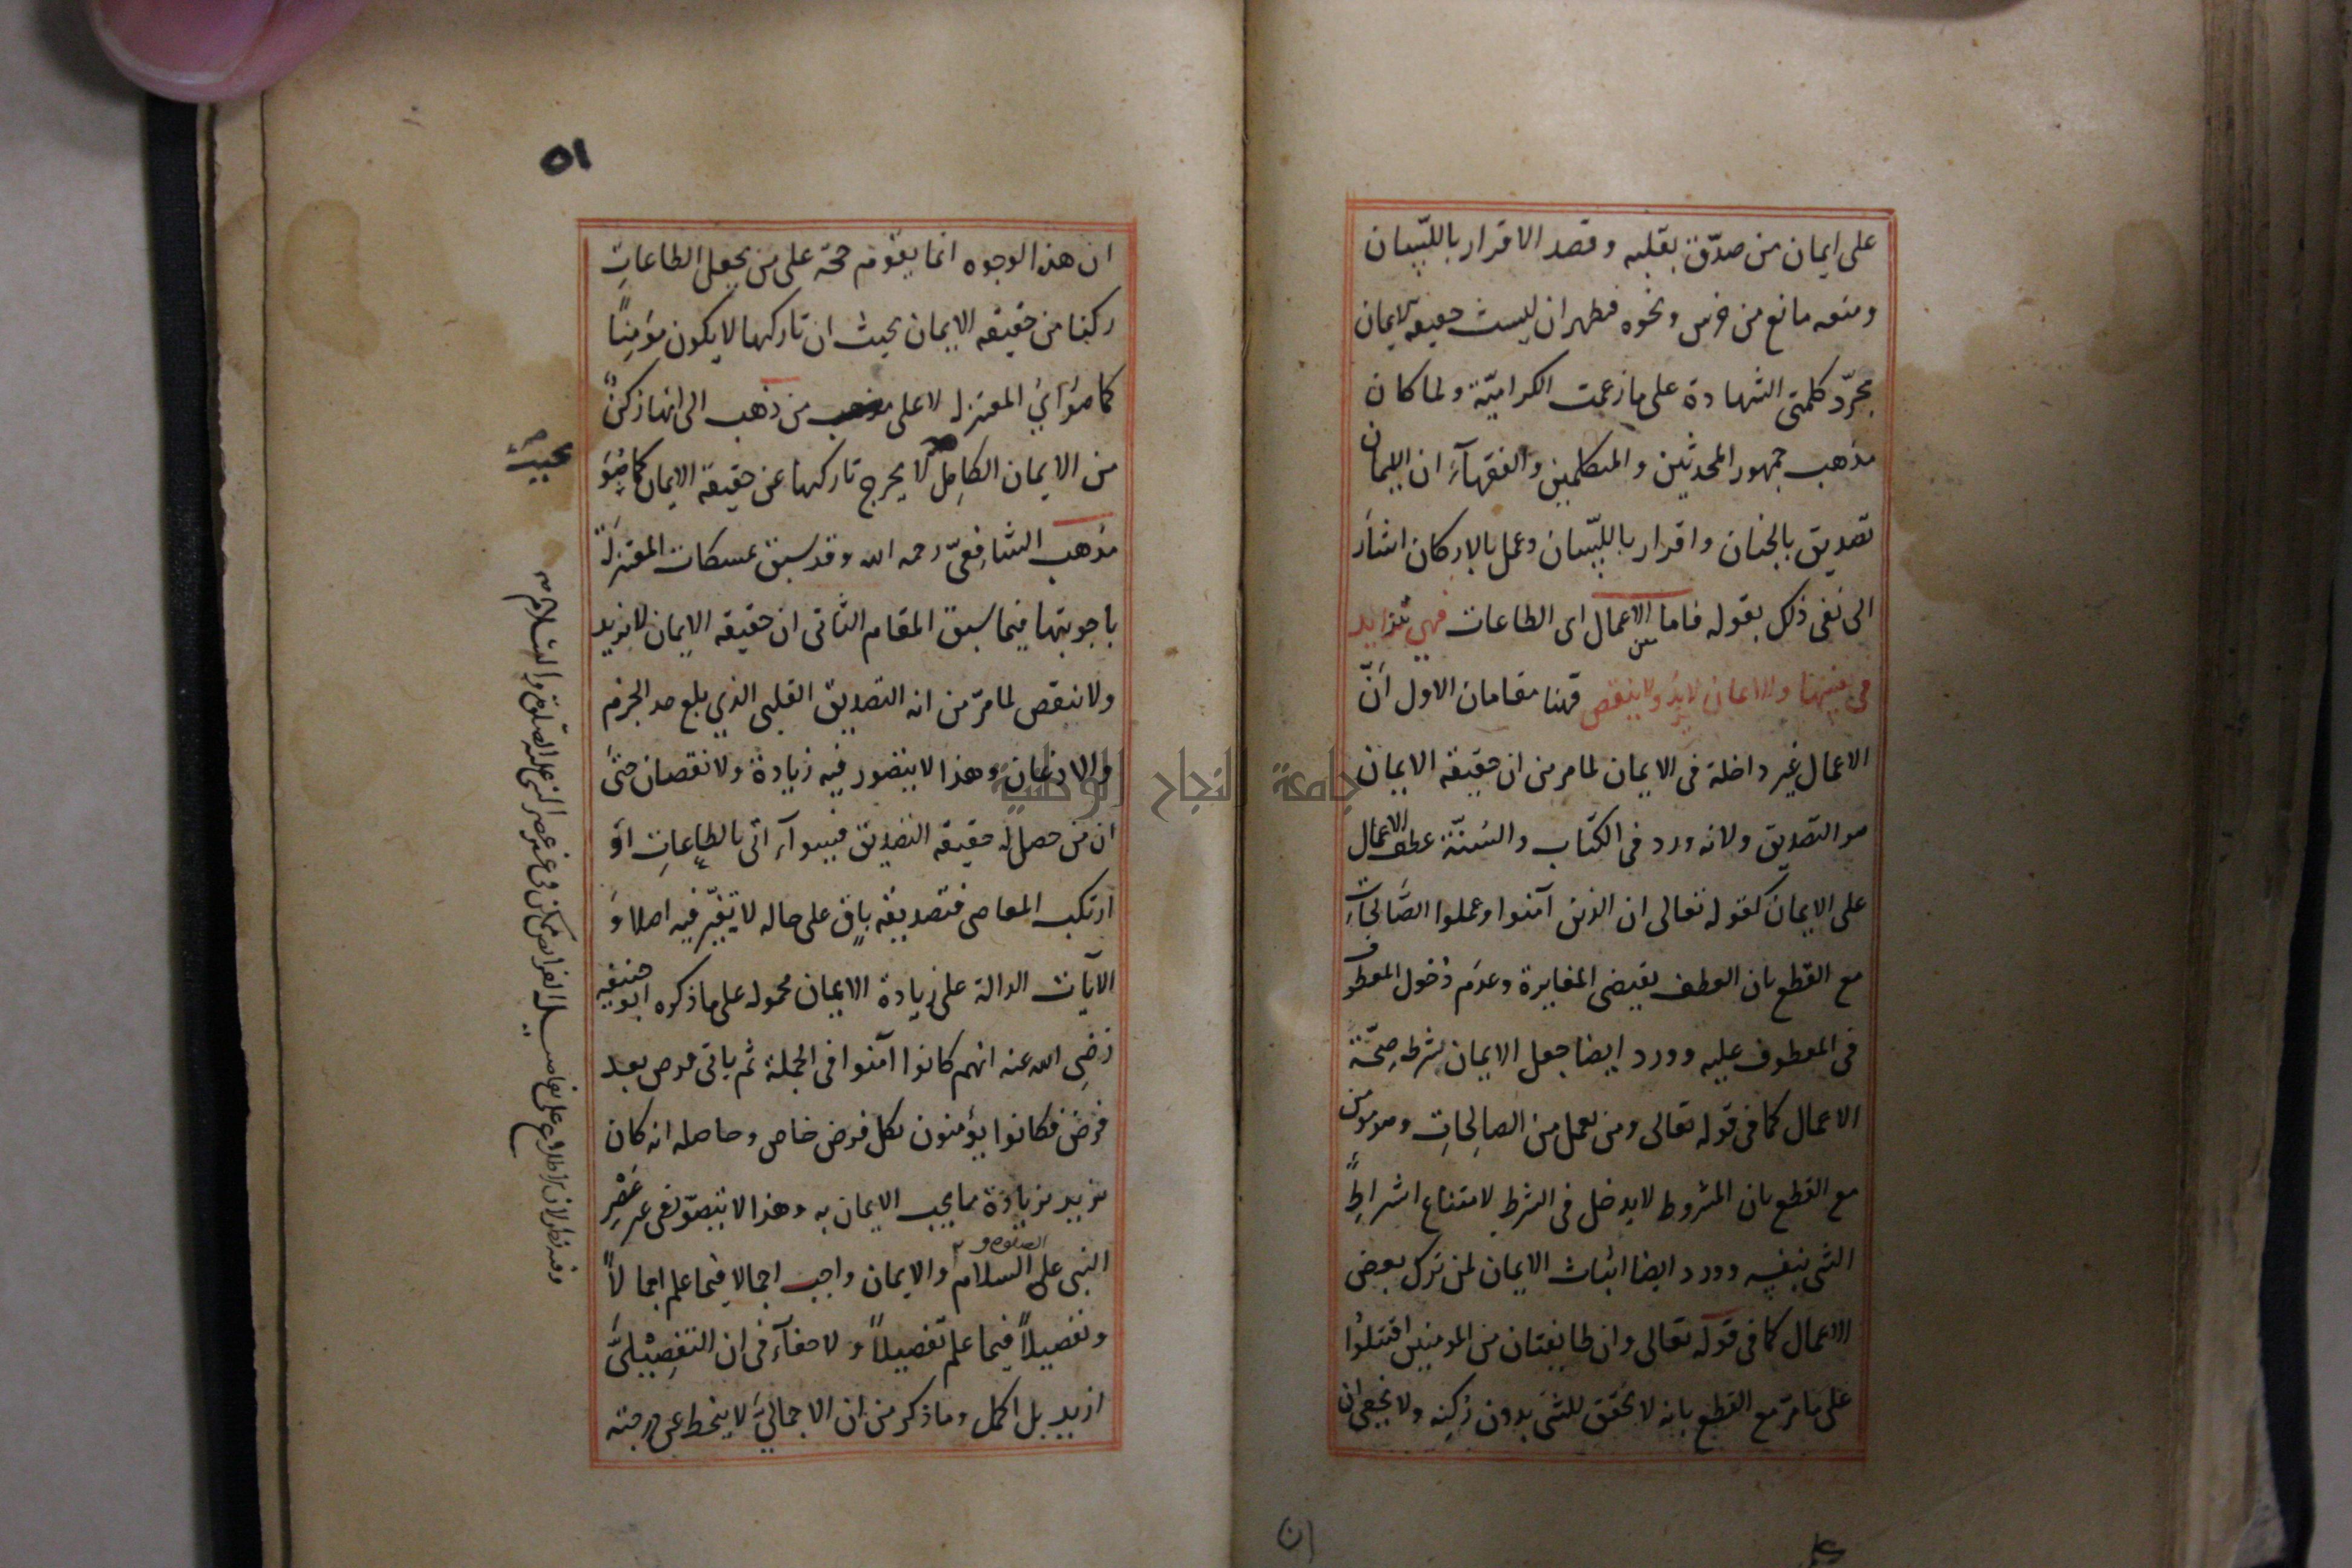 على ايمان من صدّق بقلبه وقصد الاقرار باللسان
ومنعه مانع من خرس ونحوه فظهر ان ليست حقيقة الايمان
مجرّد كلمتى الشهادة على ما زعمت الكراميّة ولما كان
مذهب جمهور المحدثين والمتكلمين والفقهآء ان الايمان
تصديق بالجنان واقرار باللسان وعمل بالاركان اشار
الى نفى ذلك بقوله فاما الاعمال اى الطاعات فهى تتزايد
فى نفسها والايمان لا يزيد ولا ينقص فهنا مقامان الاول انّ
الاعمال غير داخلة فى الايمان لما مر من ان حقيقة الايمان
هو التصديق ولانه ورد فى الكتاب والسنّة عطف الاعمال
على الايمان كقوله تعالى ان الذين آمنوا وعملوا الصّالحات
مع القطع بان العطف يقتضى المغايرة وعدم دخول المعطوف
فى المعطوف عليه وورد ايضا جعل الايمان شرط صحّة
الاعمال كما فى قوله تعالى ومن يعمل من الصالحات وهو مومن
مع القطع بان المشروط لا يدخل فى الشرط لامتناع اشتراط
الشئ بنفسه وورد ايضا اثبات الايمان لمن ترك بعض
الاعمال كما فى قوله تعالى وان طايفتان من المومنين اقتتلوا
على ما مرّ مع القطع بانه لا تحقق للشئ بدون ركنه ولا يخفى ان
ان
٥١
ان هذه الوجوه انما يقوم حجة على من يجعل الطاعات
ركنا من حقيقه الايمان بحيث ان تاركها لا يكون مؤمنًا
كما هو رأي المعتزله لا على مذهب من ذهب الى انها ركن
من الايمان الكامل لا يخرج تاركها عن حقيقة الايمان كما هو
بحيث
مذهب الشافعىّ رحمه الله وقد سبق تمسكات المعتزلة
باجوبتها فيما سبق المقام الثانى ان حقيقه الايمان لا يزيد
ولا ينقص لما مرّ من انه التصديق القلبى الذي بلغ حد الجزم
والاذعان وهذا لا يتصور فيه زيادة ولا نقصان حتى
ان من حصل له حقيقه التصديق فسوآء اتى بالطاعات او
ارتكب المعاصى فتصديقه باق على حاله لا تغيّر فيه اصلا و
الآيات الدالة على زيادة الايمان محموله على ما ذكره ابو حنيفه
رضى الله عنه انهم كانوا آمنوا فى الجملة ثم ياتى فرض بعد
فرض فكانوا يؤمنون بكل فرض خاص وحاصله انه كان
يزيد بزيادة ما يجب الايمان به وهذا لا يتصوّر فى غير عصر
النبى عليه الصلوة و السلام والايمان واجب اجمالا فيما علم اجمالاً
وتفصيلاً فيما علم تفصيلاً ولا خفآء فى ان التفصيلىّ
ازيد بل اكمل وما ذكر من ان الاجمالىّ لا ينحط عن درجته
وفيه نظر لان الاطلاع على تفاصيل الفرائض ممكن فى غير عصر النبى عليه الصلوة والسلام
جامعة النجاح الوطنية